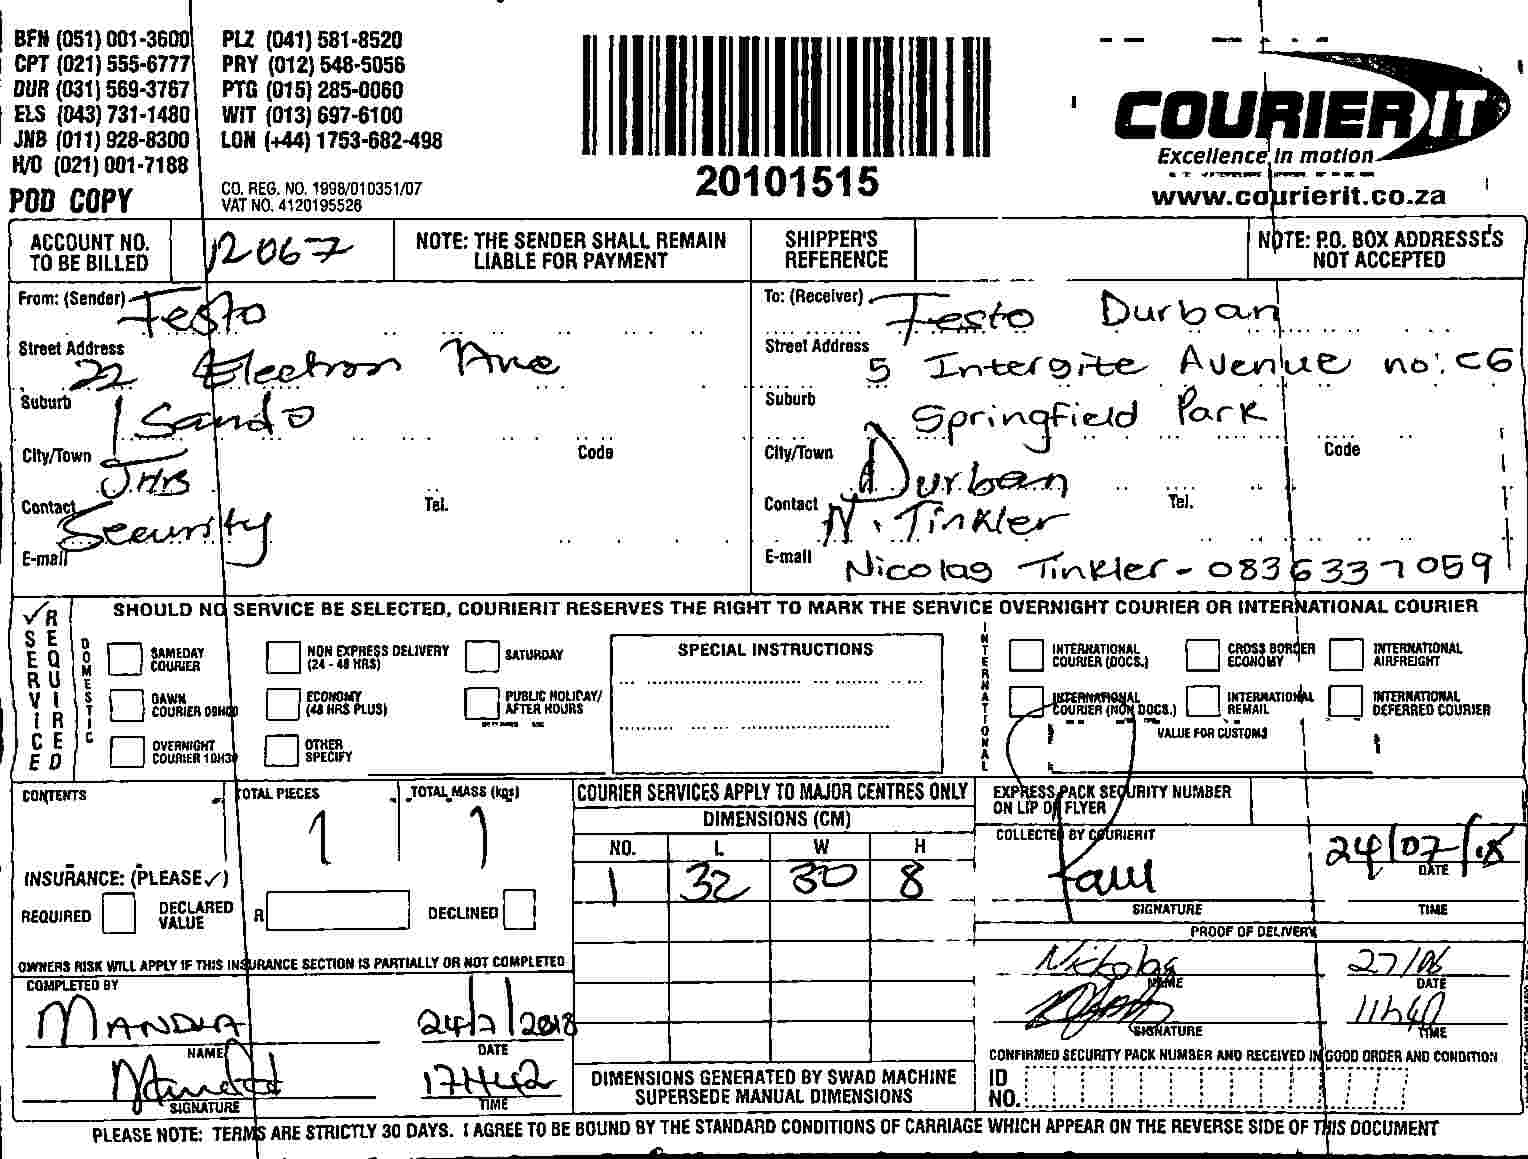 BFN (051) 001-3600 PLZ (041) 581-8520
CPT (021) 555-6777 PRY (012) 548-5056
DUR (031) 569-3767 PTG (015) 285-0060
ELS (043) 731-1480 WIT (013) 697-6100
JNB (011) 928-8300 LON (+44) 1753-682-498
H/O (021) 001-7188
POD COPY
CO. REG. NO. 1998/010351/07
VAT NO. 4120195526
20101515
COURIER IT
Excellence in motion
www.courierit.co.za
ACCOUNT NO. TO BE BILLED 12067
NOTE: THE SENDER SHALL REMAIN LIABLE FOR PAYMENT
SHIPPER'S REFERENCE
NOTE: P.O. BOX ADDRESSES NOT ACCEPTED
From: (Sender) Festo
Street Address 22 Electron Ave
Suburb Sando
City/Town JHB Code
Contact Security Tel.
E-mail
To: (Receiver) Festo Durban
Street Address 5 Intersite Avenue no: C6
Suburb Springfield Park
City/Town Durban Code
Contact N. Tinkler Tel.
E-mail Nicolas Tinkler - 0836337059
✓ SERVICE REQUIRED
SHOULD NO SERVICE BE SELECTED, COURIERIT RESERVES THE RIGHT TO MARK THE SERVICE OVERNIGHT COURIER OR INTERNATIONAL COURIER
DOMESTIC
SAMEDAY COURIER
NON EXPRESS DELIVERY (24 - 48 HRS)
SATURDAY
DAWN COURIER 09H00
ECONOMY (48 HRS PLUS)
PUBLIC HOLIDAY/ AFTER HOURS
OVERNIGHT COURIER 10H30
OTHER SPECIFY
SPECIAL INSTRUCTIONS
INTERNATIONAL
INTERNATIONAL COURIER (DOCS.)
CROSS BORDER ECONOMY
INTERNATIONAL AIRFREIGHT
INTERNATIONAL COURIER (NON DOCS.)
INTERNATIONAL REMAIL
INTERNATIONAL DEFERRED COURIER
VALUE FOR CUSTOMS
CONTENTS
TOTAL PIECES 1
TOTAL MASS (kgs) 1
INSURANCE: (PLEASE ✓)
REQUIRED DECLARED VALUE R DECLINED
OWNERS RISK WILL APPLY IF THIS INSURANCE SECTION IS PARTIALLY OR NOT COMPLETED
COMPLETED BY
MANDLA 24/7/2018
NAME DATE
17H42
SIGNATURE TIME
COURIER SERVICES APPLY TO MAJOR CENTRES ONLY
DIMENSIONS (CM)
NO. L W H
1 32 30 8
DIMENSIONS GENERATED BY SWAD MACHINE
SUPERSEDE MANUAL DIMENSIONS
EXPRESS PACK SECURITY NUMBER
ON LIP OF FLYER
COLLECTED BY COURIERIT
Paul 24/07/18
DATE
SIGNATURE TIME
PROOF OF DELIVERY
Nickolas 27/06
NAME DATE
11h40
SIGNATURE TIME
CONFIRMED SECURITY PACK NUMBER AND RECEIVED IN GOOD ORDER AND CONDITION
ID NO.
PLEASE NOTE: TERMS ARE STRICTLY 30 DAYS. I AGREE TO BE BOUND BY THE STANDARD CONDITIONS OF CARRIAGE WHICH APPEAR ON THE REVERSE SIDE OF THIS DOCUMENT